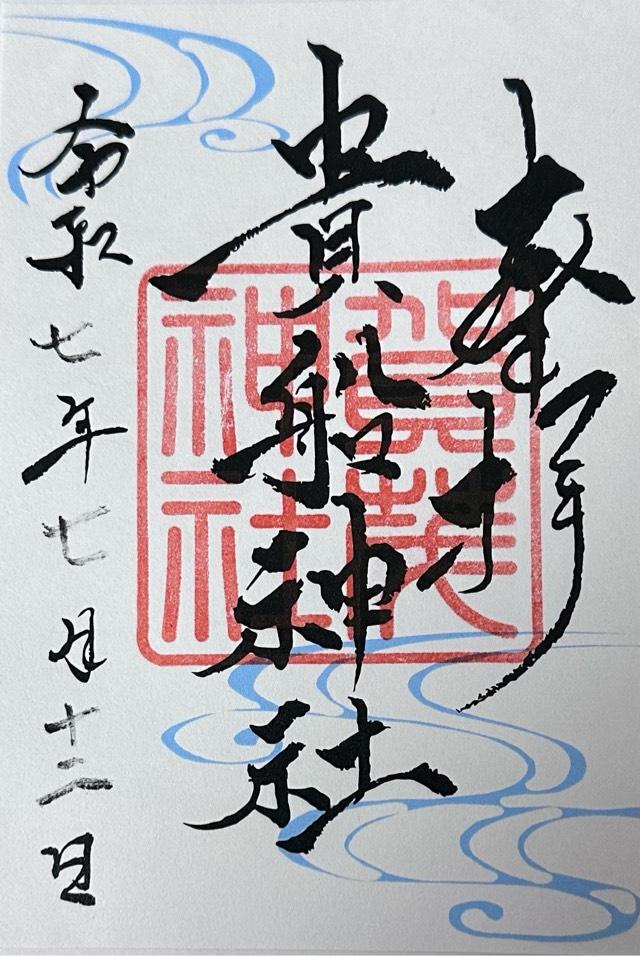 奉拝
貴船神社
賀茂
神社
令和七年七月十二日